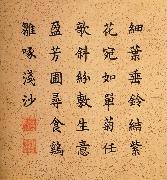 細葉垂鈴結紫
花宛如單菊任
欹斜紛敷生意
盈芳圃尋食鷄
雛啄淺沙